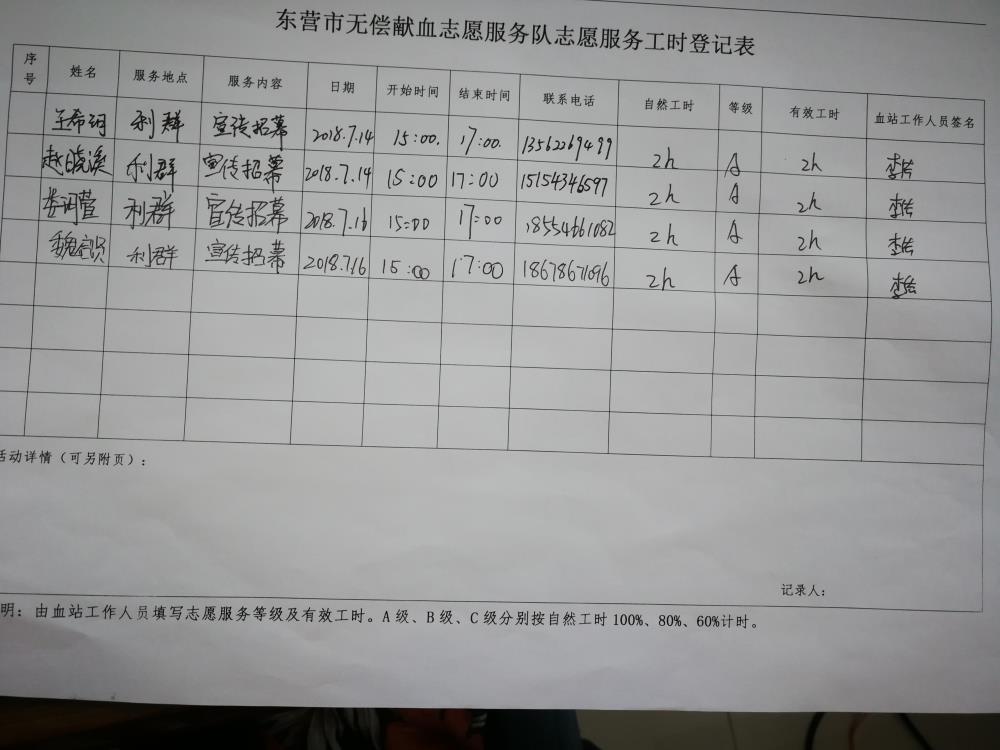 东营市无偿献血志愿服务队志愿服务工时登记表
序号 姓名 服务地点 服务内容 日期 开始时间 结束时间 联系电话 自然工时 等级 有效工时 血站工作人员签名
王希珂 利群 宣传招募 2018.7.14 15:00. 17:00. 13562269499 2h A 2h
赵晓溪 利群 宣传招募 2018.7.14 15:00 17:00 15154346597 2h A 2h
利群 宣传招募 2018.7.16 15:00 17:00 18554661082 2h A 2h
魏 利群 宣传招募 2018.7.16 15:00 17:00 18678671096 2h A 2h
活动详情（可另附页）：
记录人：
明：由血站工作人员填写志愿服务等级及有效工时。A 级、B 级、C 级分别按自然工时 100%、80%、60%计时。